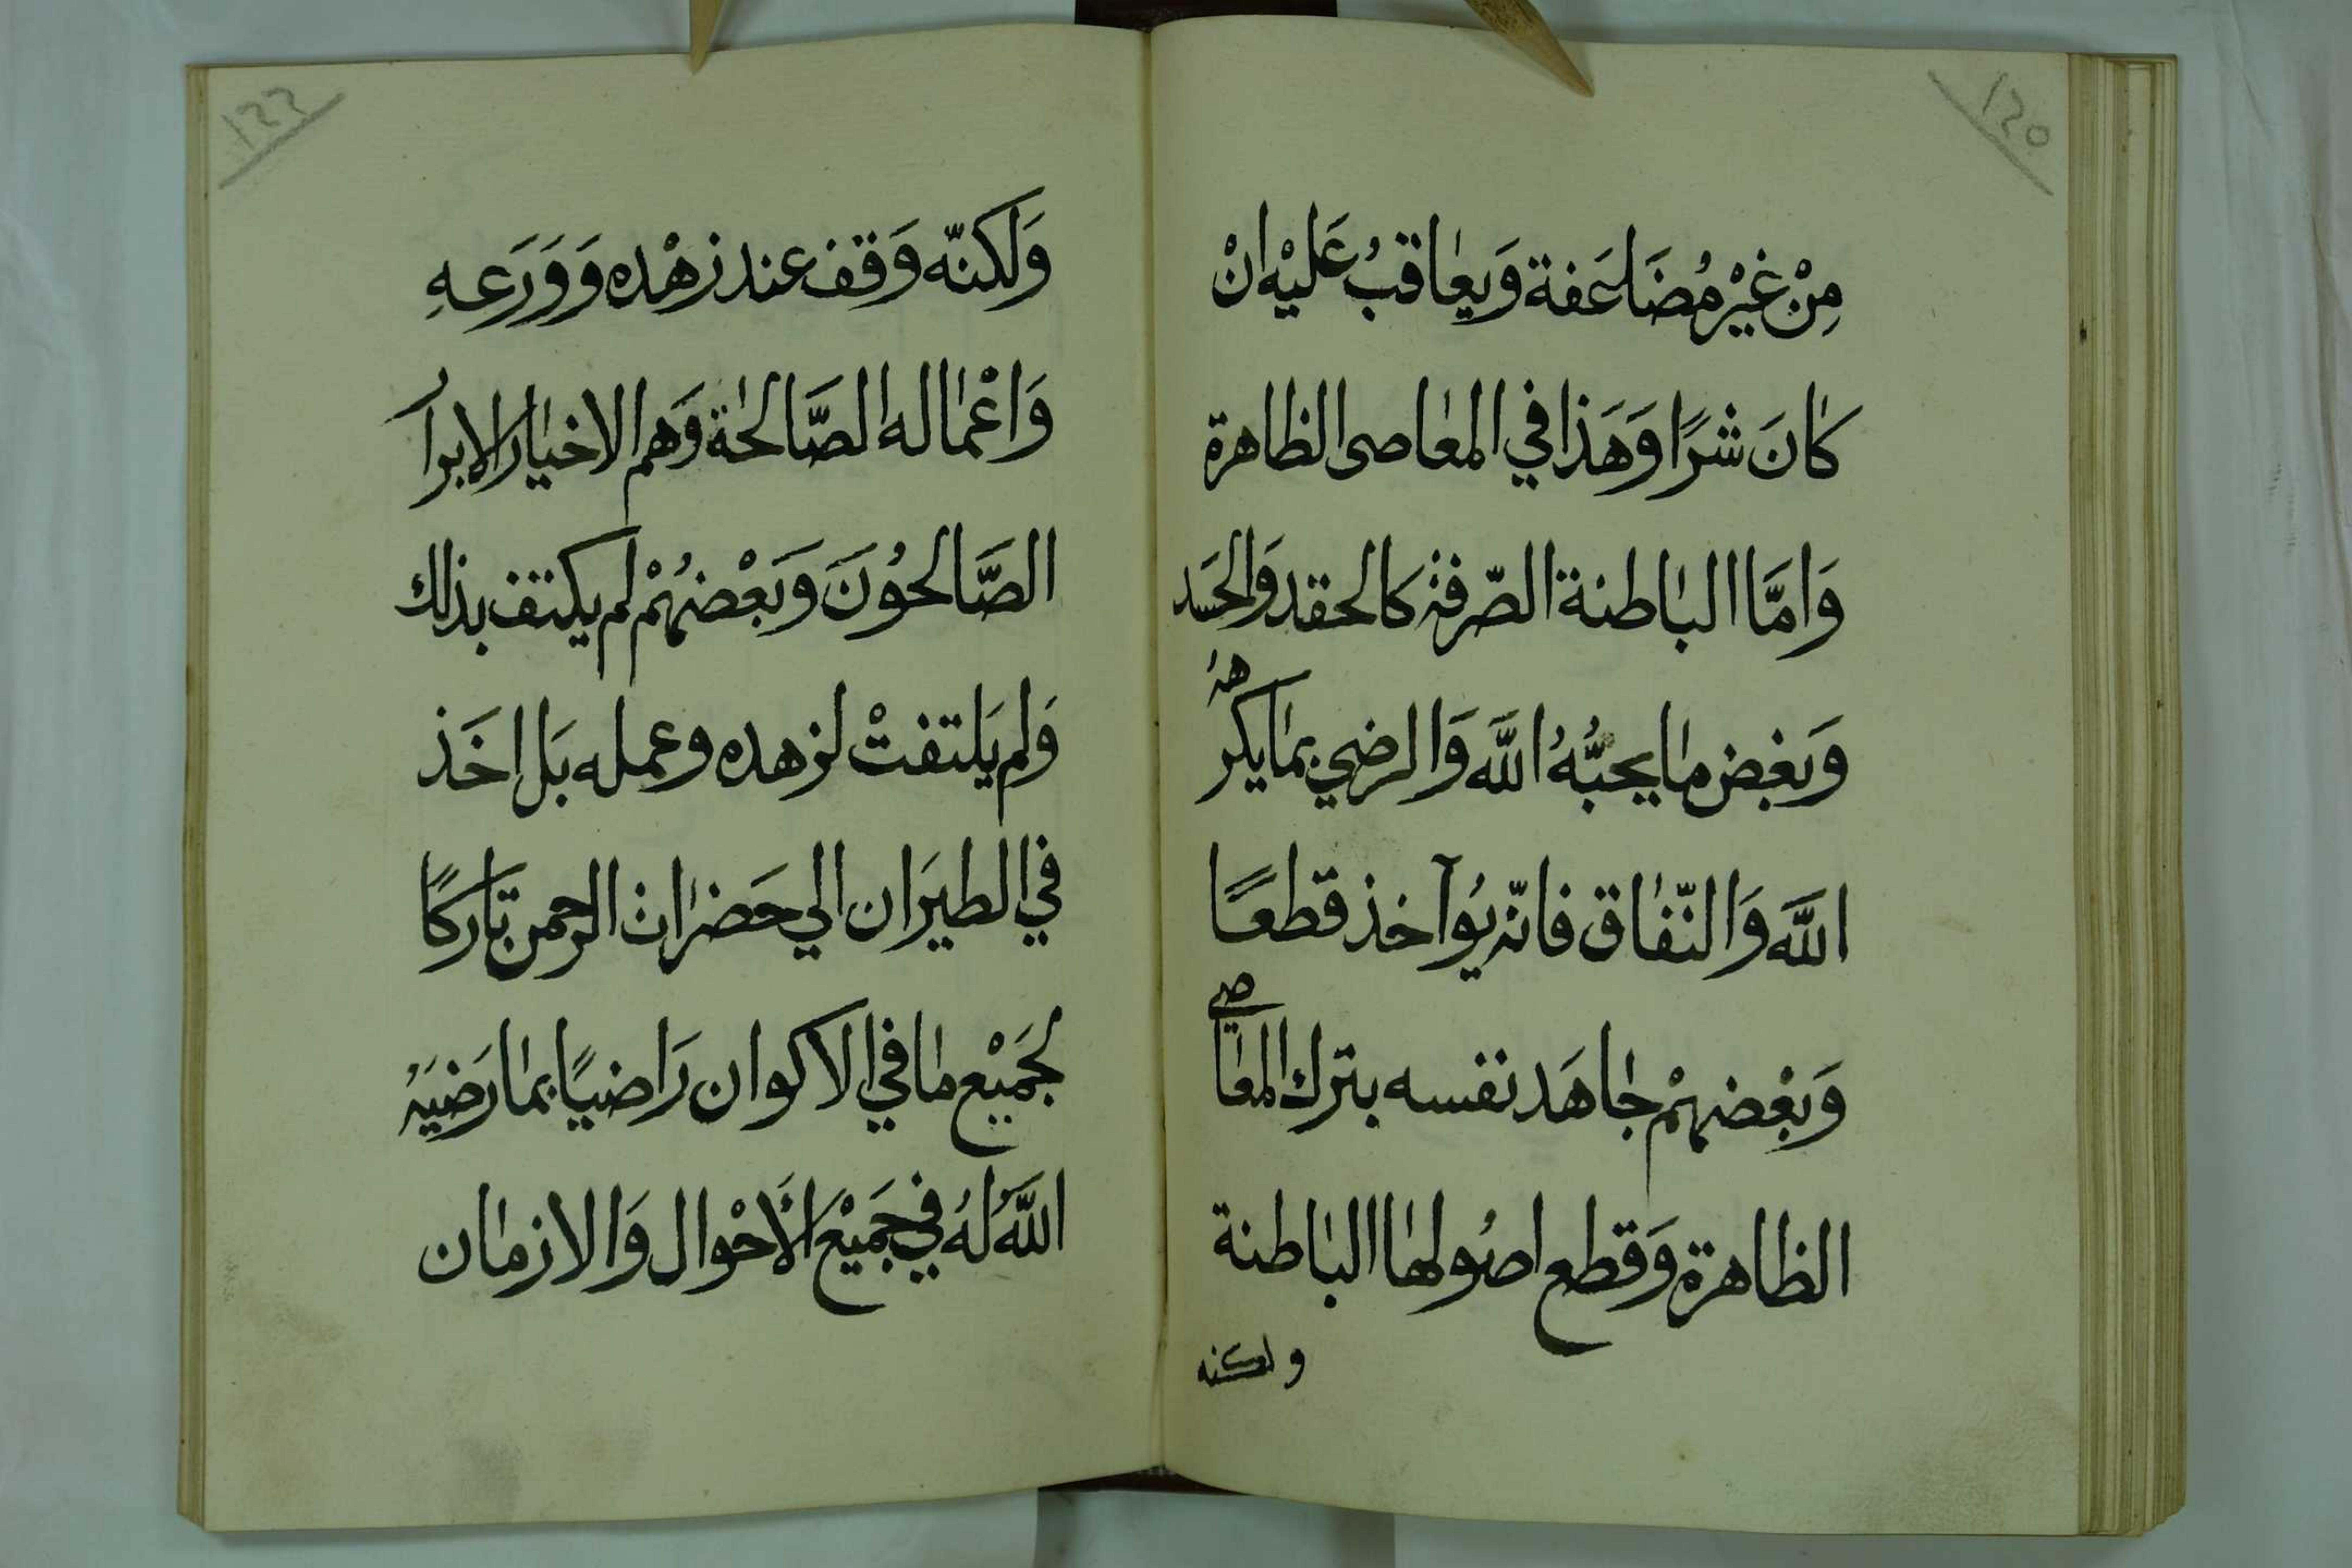 120
مِنْ غَيْرِ مُضَاعَفة وَيعاقبُ عَليْه انْ
كانَ شرًا وَهَذا في المعاصى الظاهرة
وَامَّا الباطنة الصّرفة كالحقد وَالحسَد
وَبغض ما يحبُّهُ اللَّه وَالرضي بما يكرهه
اللَّه وَالنّفاق فانّه يُوآخذ قطعًا
وَبَعْضهمْ جاهَد نفسه بترك المعاصي
الظاهرة وَقطع اصُولها الباطنة
ولكنه
122
وَلَكنّه وَقف عند زهْده وَوَرَعهِ
وَاعْماله الصَّالحاة وَهم الاخيار الابرار
الصَّالحوُنَ وَبَعْضهُمْ لم يكتف بذلك
وَلم يَلتفتْ لزهده وعمله بَل اخَذ
في الطيَران الي حَضرات الرحمن تاركًا
لجَميْع ما في الاكوان رَاضيًا بما رَضيَهُ
اللَّهُ لهُ في جَميْع الَاحْوال وَالازمان